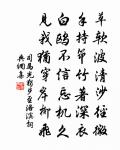 草軟波清沙徑微
手持筇竹著深衣
白鷗不信忘機久
見我猶穿岸柳飛
司馬光獨步至洛濱詞
典測書